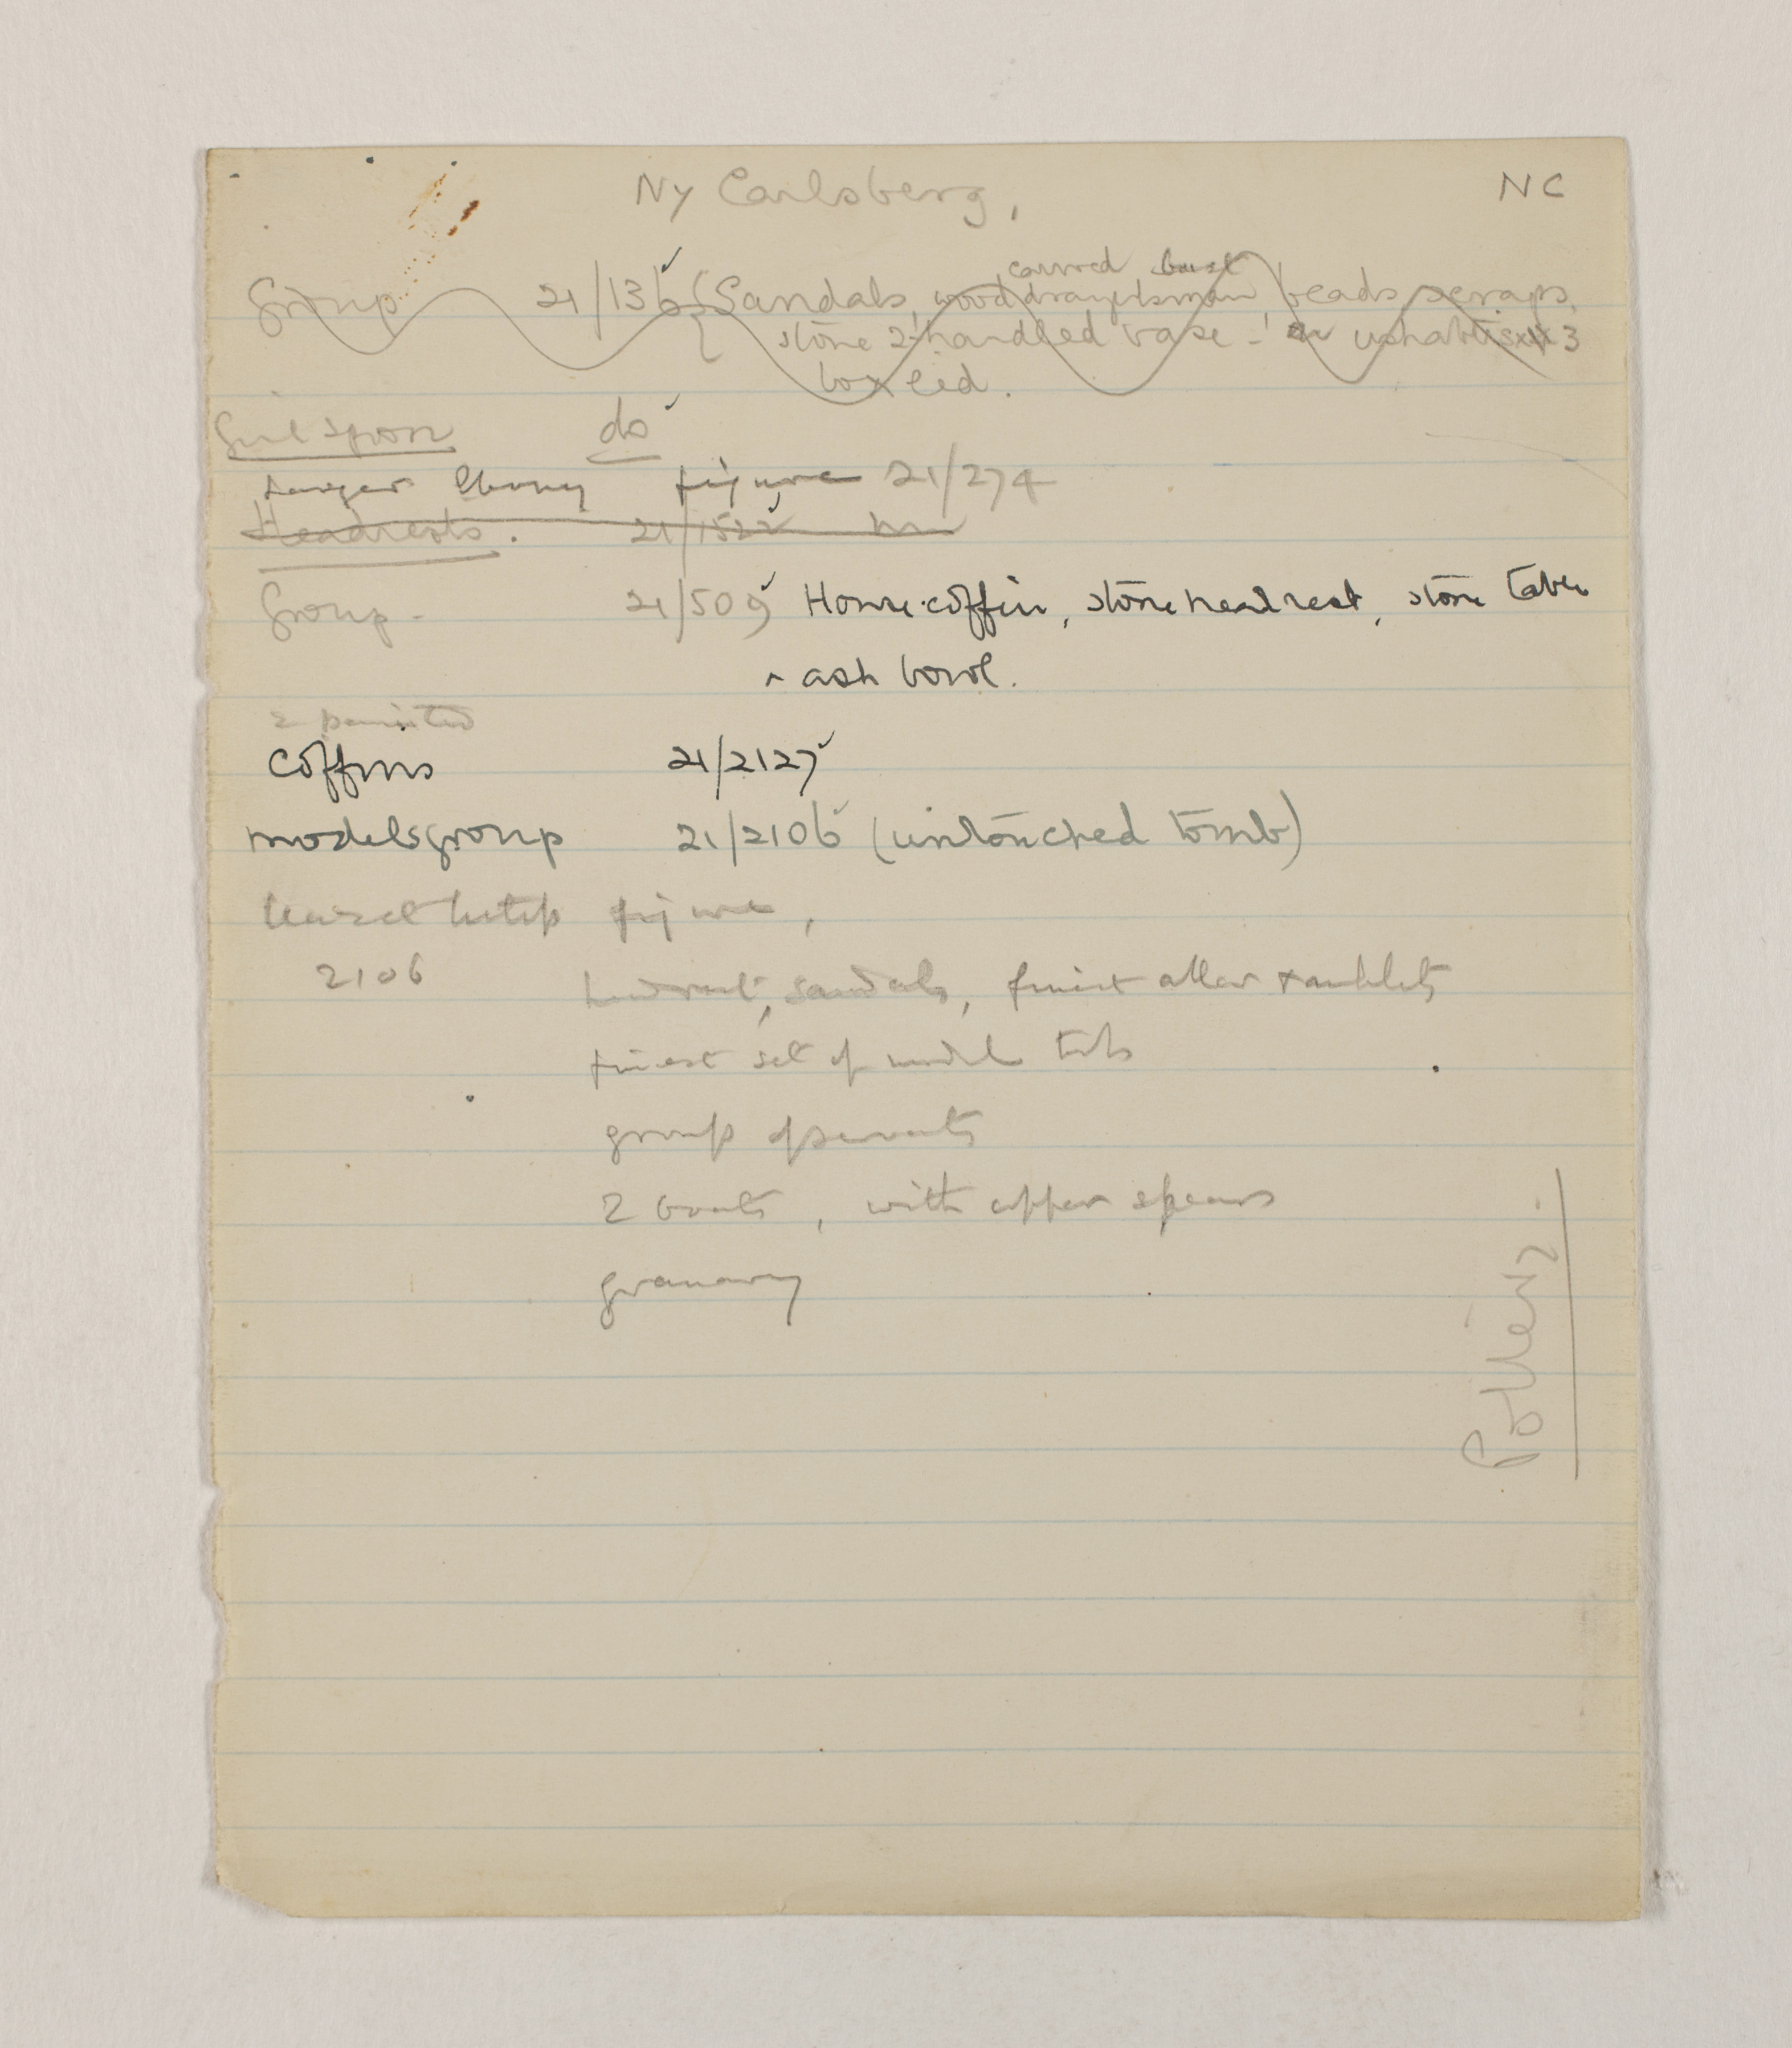 Ny Carlsberg, NC
carved bust
Group 21/136 { Sandals, wood draughtsman, beads, scraps,
stone 2-handled vase - ushabtis 3
box lid.
Girl spoon do
Larger Ebony figure 21/274
Headrests. 21/1522
Group - 21/509 House coffin, stone headrest, stone table
ash bowl.
2 painted
Coffins 21/2127
models group 21/2106 (untouched tomb)
figure,
2106 headrest, sandals, finest collar + anklets
finest set of model tools
group of servants
2 boats, with copper spears
granary
Pottery.